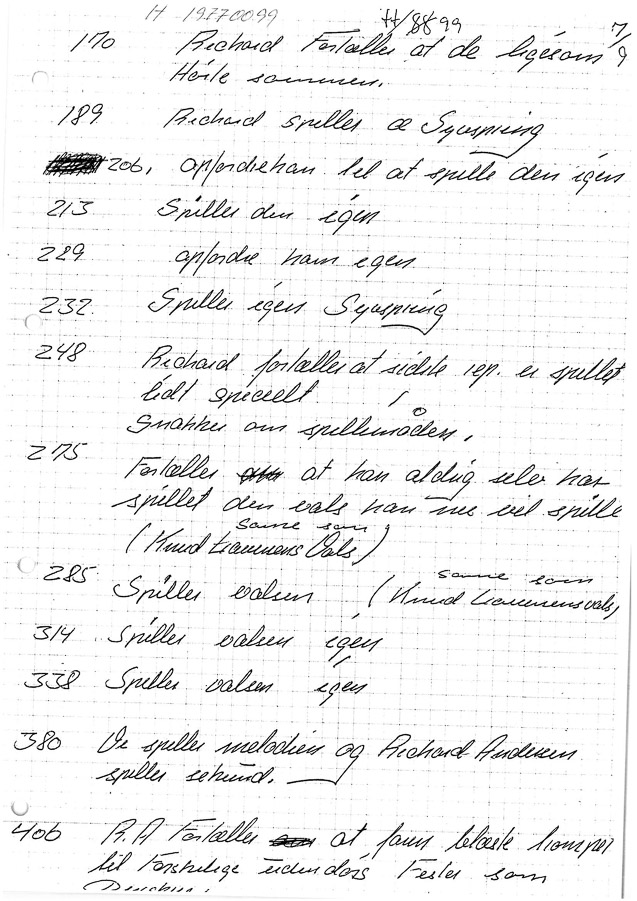 H 19770099
H/8899
7/9
170 Richard Fortæller at de ligesom
Hørte sammen.
189 Richard spiller æ Syvspring
206, opfordre han til at spille den igen
213 Spiller den igen
229 opfordre ham igen
232 Spiller igen Syvspring
248 Richard fortæller at sidste rep. er spillet
lidt specielt
Snakker om spillemåden,
275 Fortæller at han aldrig selv har
spillet den vals han nu vil spille
samme som
(Knud Vals)
285 Spiller valsen (Knud
samme som
314 Spiller valsen igen
338 Spiller valsen igen
380 De spiller melodien og Richard Andersen
spiller sekund.
406 R.A Fortæller at faren blæste trompet
til Forskellige udendørs Fester som